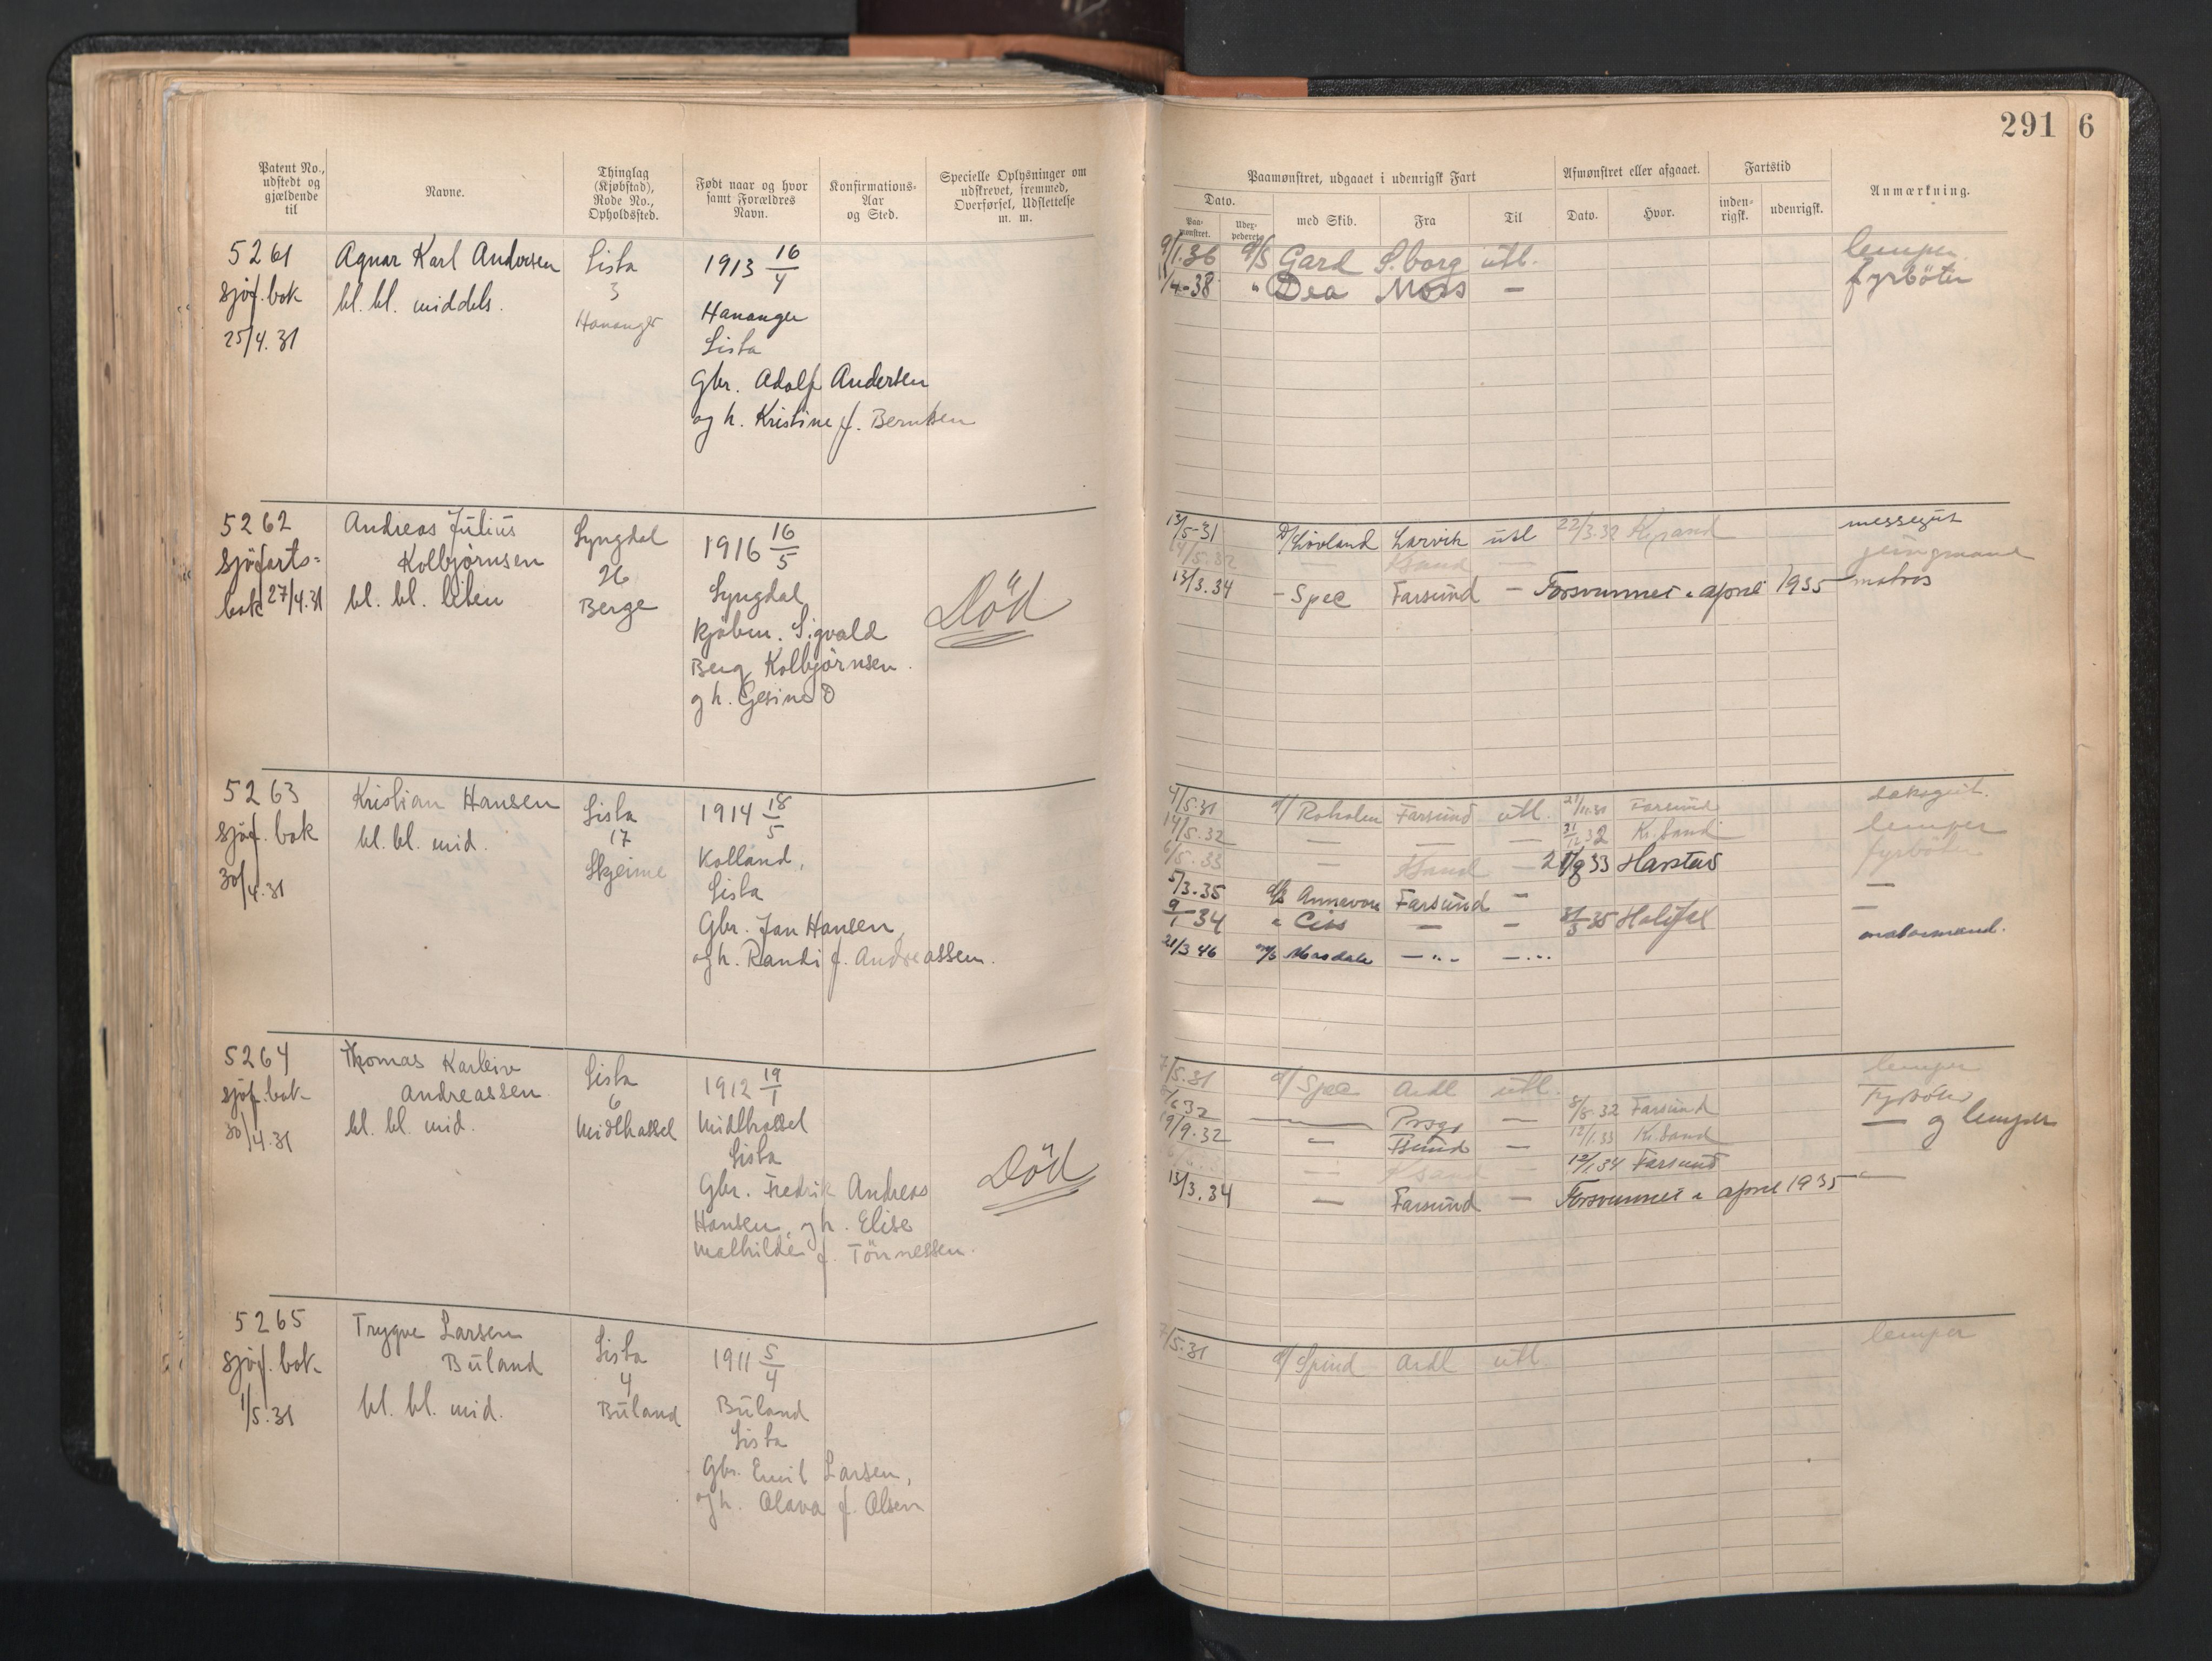 291 6
Patent No., udstedt og gjældende til
Navne.
Thinglag (Kjøbstad), Rode No., Opholdssted.
Født naar og hvor samt Forældres Navn.
Konfirmations-Aar og Sted.
Specielle Oplysninger om udskrevet, fremmed, Overførsel, Udslettelse m. m.
Paamønstret, udgaaet i udenrigsk Fart
Afmønstret eller afgaaet.
Fartstid
Anmærkning.
Dato.
Paa-mønstret.
med Skib.
Fra
Til
Dato.
Hvor.
inden-rigsk.
udenrigsk.
5261
sjøf. bok
25/4.31
Agnar Karl Andersen
bl. bl. middels.
Lista
3
Hananger
1913 16/4
Hananger
Lista
Gbr. Adolf Andersen
og h. Kristine f. Berntsen
9/1.36 d/s Gard S.borg utl. lemper
1/4-38 " Dea Moss — fyrböter
5262
Sjöfarts-
bok 27/4.31
Andreas Julius
Kolbjörnsen
bl. bl. liten
Lyngdal
26
Berge
1916 16/5
Lyngdal
kjöbm. Sigvald
Berg Kolbjörnsen
og h. Gesine D
Död
13/5-31 D/ Lövland Larvik utl 22/3.32 Kr.sand messegut
— Ksand — jungmann
13/3.34 - Spec Farsund — Forsvunnet i april 1935 matros
5263
sjøf. bok
30/4.31
Kristian Hansen
bl. bl. mid.
Lista
17
Skjeime
1914 18/5
Kolland,
Lista
Gbr. Jan Hansen
og h. Randi f. Andreassen.
4/5.31 d/ Roholm Farsund utl. Farsund deksgut.
14/5.32 — — — Kr.Sand lemper
/5.33 — Ksand — 33 Harstad fyrböter
5/3.35 d/s Annavore Farsund - —
9/1 34 " Ciss — - 35 Halifax —
21/3 46 m/s Mosdale — " — — " — motormand.
5264
sjøf. bok
30/4.31
Thomas Karleiv
Andreassen
bl. bl. mid.
Lista
6
Midthassel
1912 19/1
Midthassel
Lista
Gbr. Fredrik Andreas
Hansen, og h. Elise
Mathilde f. Tönnessen.
Död
7/5.31 d/ Spec Ardl utl. lemper
6.32 — Prsgr — 8/8.32 Farsund Fyrböter
19/9.32 — Fsund — 12/1.33 Kr.Sand — og lemper
— Ksand — 12/1.34 Farsund
13/3.34 — Farsund — Forsvunnet i april 1935 —
5265
sjøf. bok
1/5.31
Trygve Larsen
Buland
bl. bl. mid.
Lista
4
Buland
1911 5/4
Buland
Lista
Gbr. Emil Larsen,
og h. Olava f. Olsen
7/5.31 d/ Spind Ardl utl lemper